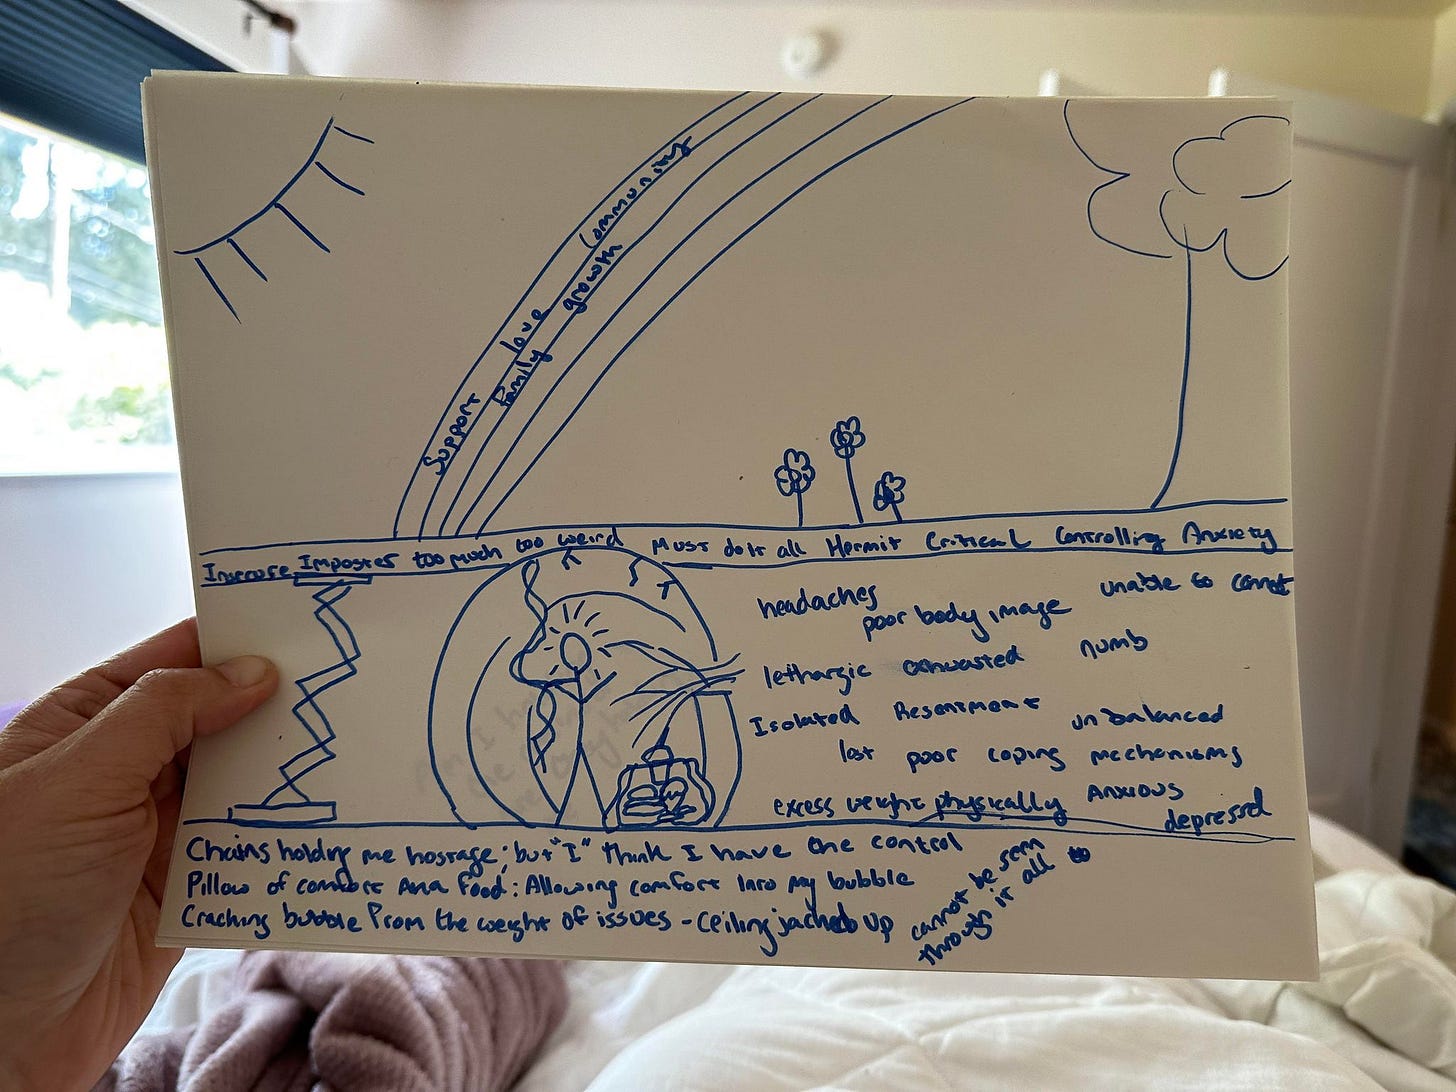 Support love community
Family growth
Insecure Imposter too much too weird Must do it all Hermit Critical Controlling Anxiety
headaches
poor body image
unable to
lethargic exhuasted numb
Isolated Resentment unbalanced
lost poor coping mechanisms
excess weight physically Anxious
depressed
Chains holding me hostage; but "I" think I have the control
Pillow of comfort And food: Allowing comfort Into my bubble
Cracking bubble from the weight of issues - Ceiling jacked up
cannot be seen
through it all to